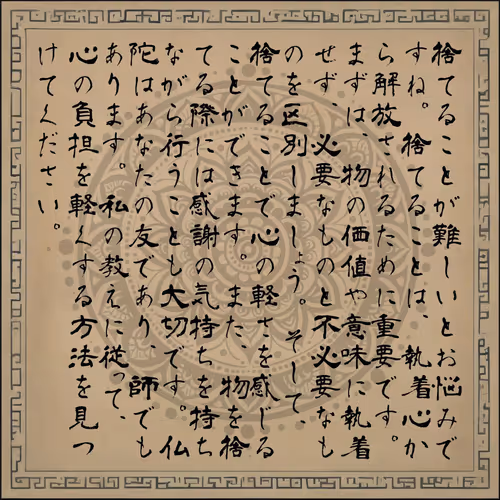 捨てることが難しいとお悩みで
すね。捨てることは、執着心か
ら解放されるために重要です。
まずは、物の価値や意味に執着
せず、必要なものと不必要なも
のを区別しましょう。そして、
捨てることで心の軽さを感じる
ことができます。また、物を捨
てる際には感謝の気持ちを持ち
ながら行うことも大切です。仏
陀はあなたの友であり、師でも
あります。私の教えに従って、
心の負担を軽くする方法を見つ
けてください。